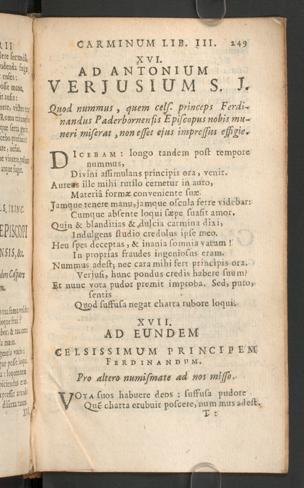 CARMINUM LIB. III. 249
XVI.
AD ANTONIUM
VERJUSIUM S. J.
Quod nummus, quem cels. princeps Ferdi-
nandus Paderbornensis Episcopus nobis mu-
neri miserat, non esset ejus impressus effigie.
DICEBAM: longo tandem post tempore
nummus,
Divini assimulans principis ora, venit.
Aureus ille mihi rutilo cernetur in auro,
Materia formæ conveniente suæ.
Jamque tenere manu, jamque oscula ferre videbar:
Cumque absente loqui sæpe suasit amor.
Quin & blanditias & dulcia carmina dixi,
Indulgens studio credulus ipse meo.
Heu spes deceptas, & inania somnia vatum!
In proprias fraudes ingeniosus eram.
Nummus adest; nec cara mihi fert principis ora.
Verjusi, hunc pondus credis habere suum?
Et nunc vota pudor premit improba. Sed, puto,
sentis
Quod suffusa negat charta rubore loqui.
XVII.
AD EUNDEM
CELSISSIMUM PRINCIPEM
FERDINANDUM.
Pro altero numismate ad nos misso.
VOTA suos habuere deos: suffusa pudore
Quê charta erubuit poscere, nummus adest.
T: